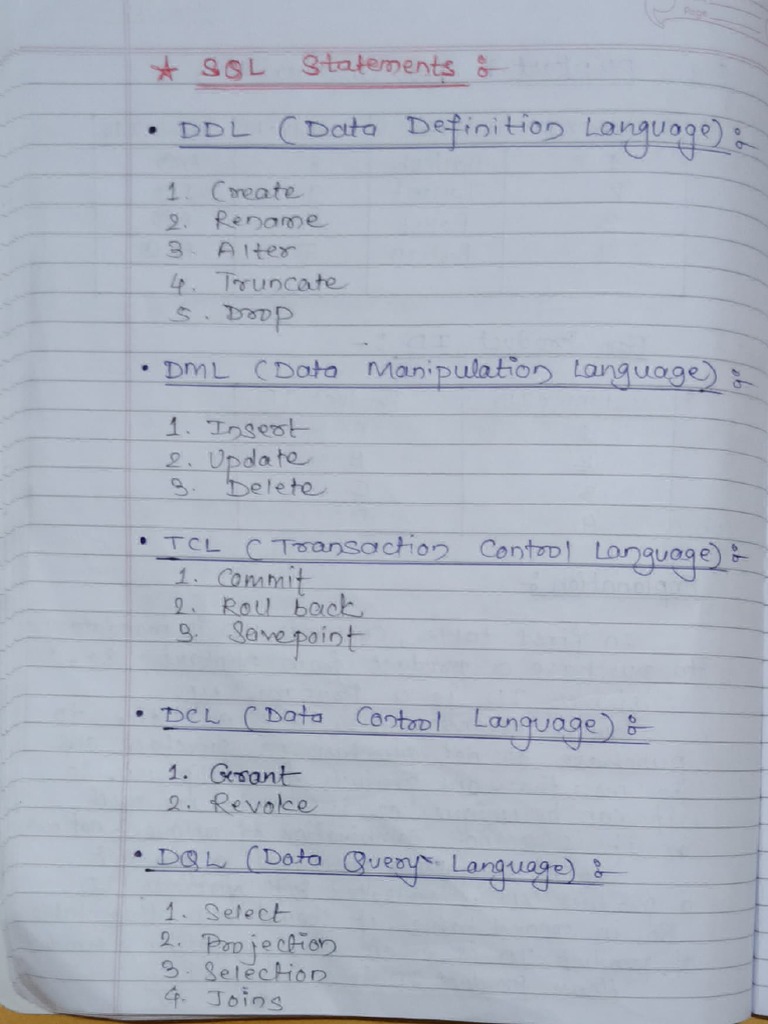 ★ SQL Statements :-
• DDL (Data Definition Language) :-
1. Create
2. Rename
3. Alter
4. Truncate
5. Drop
• DML (Data Manipulation Language) :-
1. Insert
2. Update
3. Delete
• TCL (Transaction Control Language) :-
1. Commit
2. Roll back
3. Savepoint
• DCL (Data Control Language) :-
1. Grant
2. Revoke
• DQL (Data Query Language) :-
1. Select
2. Projection
3. Selection
4. Joins